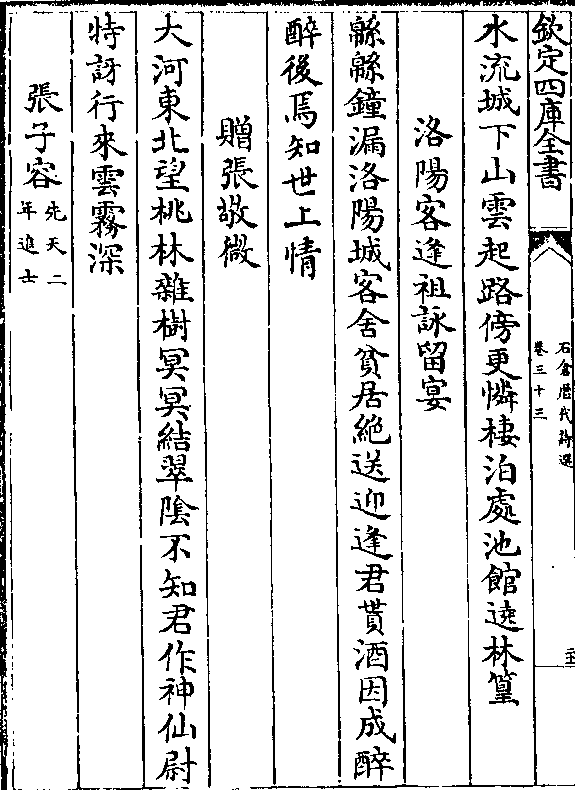 欽定四庫全書
石倉歷代詩選
卷三十三
水流城下山雲起路傍更憐棲泊處池館遶林篁
洛陽客逢祖詠留宴
緜緜鐘漏洛陽城客舍貧居絶送迎逢君貰酒因成醉
醉後焉知世上情
贈張敬微
大河東北望桃林雜樹冥冥結翠陰不知君作神仙尉
特訝行來雲霧深
張子容
先天二
年進士